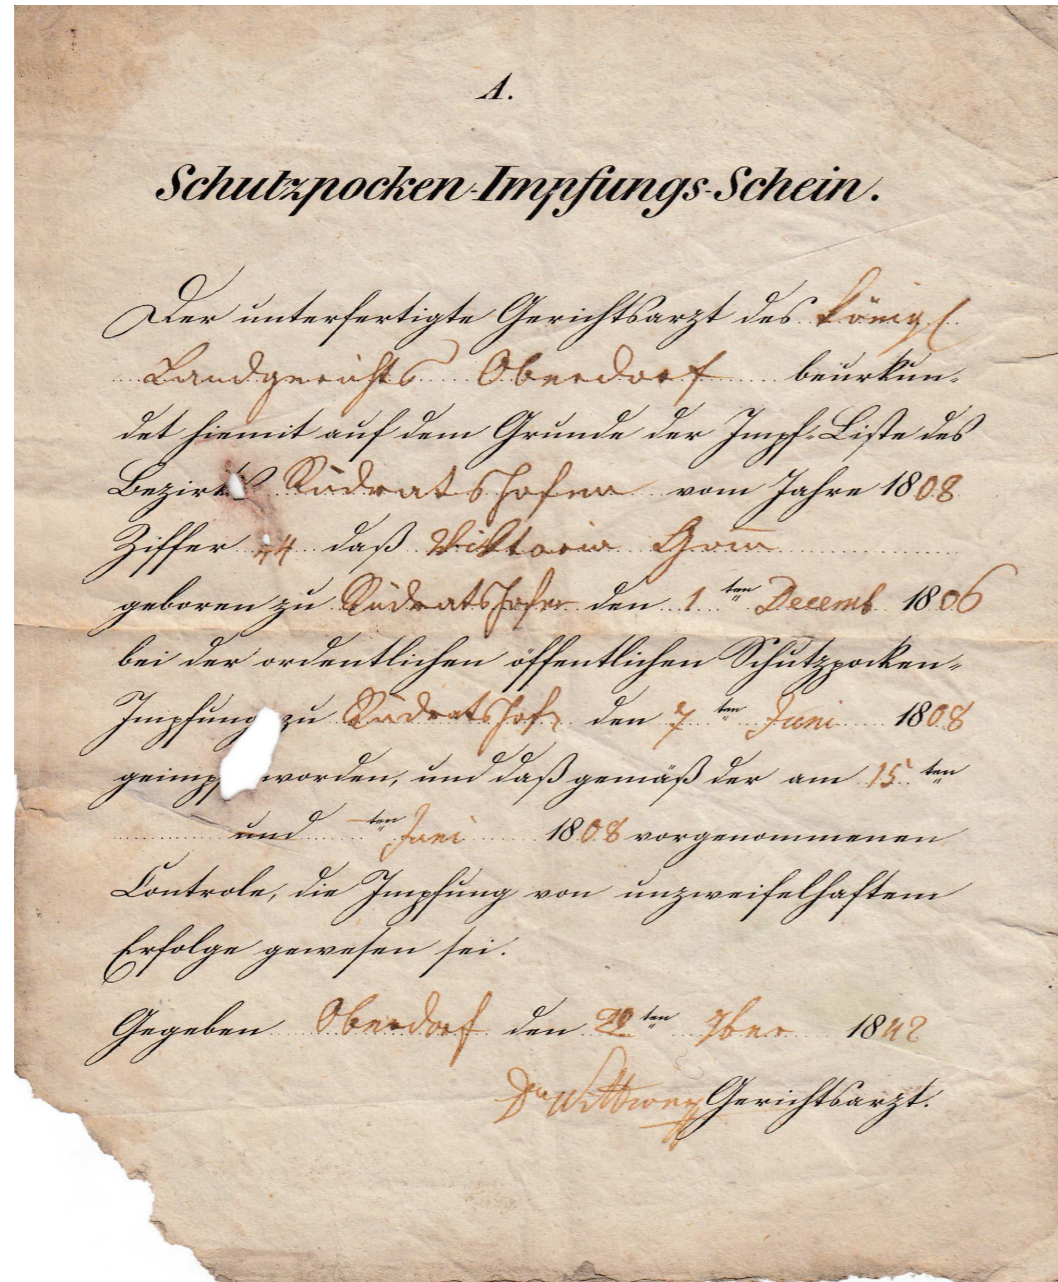 A.
Schutzpocken-Impfungs-Schein.
Der unterfertigte Gerichtsarzt des königl
Landgerichts Oberdorf beurkun-
det hiemit auf dem Grunde der Impf-Liste des
Bezirks Rudratshofen vom Jahre 1808
Ziffer 44 daß Viktoria
geboren zu Rudratshofen den 1ten Decemb 1806
bei der ordentlichen öffentlichen Schutzpocken-
Impfung zu Rudratshofn den 7ten Juni 1808
geimpf worden, und daß gemäß der am 15ten
und ten Juni 1808 vorgenommenen
Controle, die Impfung von unzweifelhaftem
Erfolge gewesen sei.
Gegeben Oberdorf den ten 7ber 1842
Dr Gerichtsarzt.